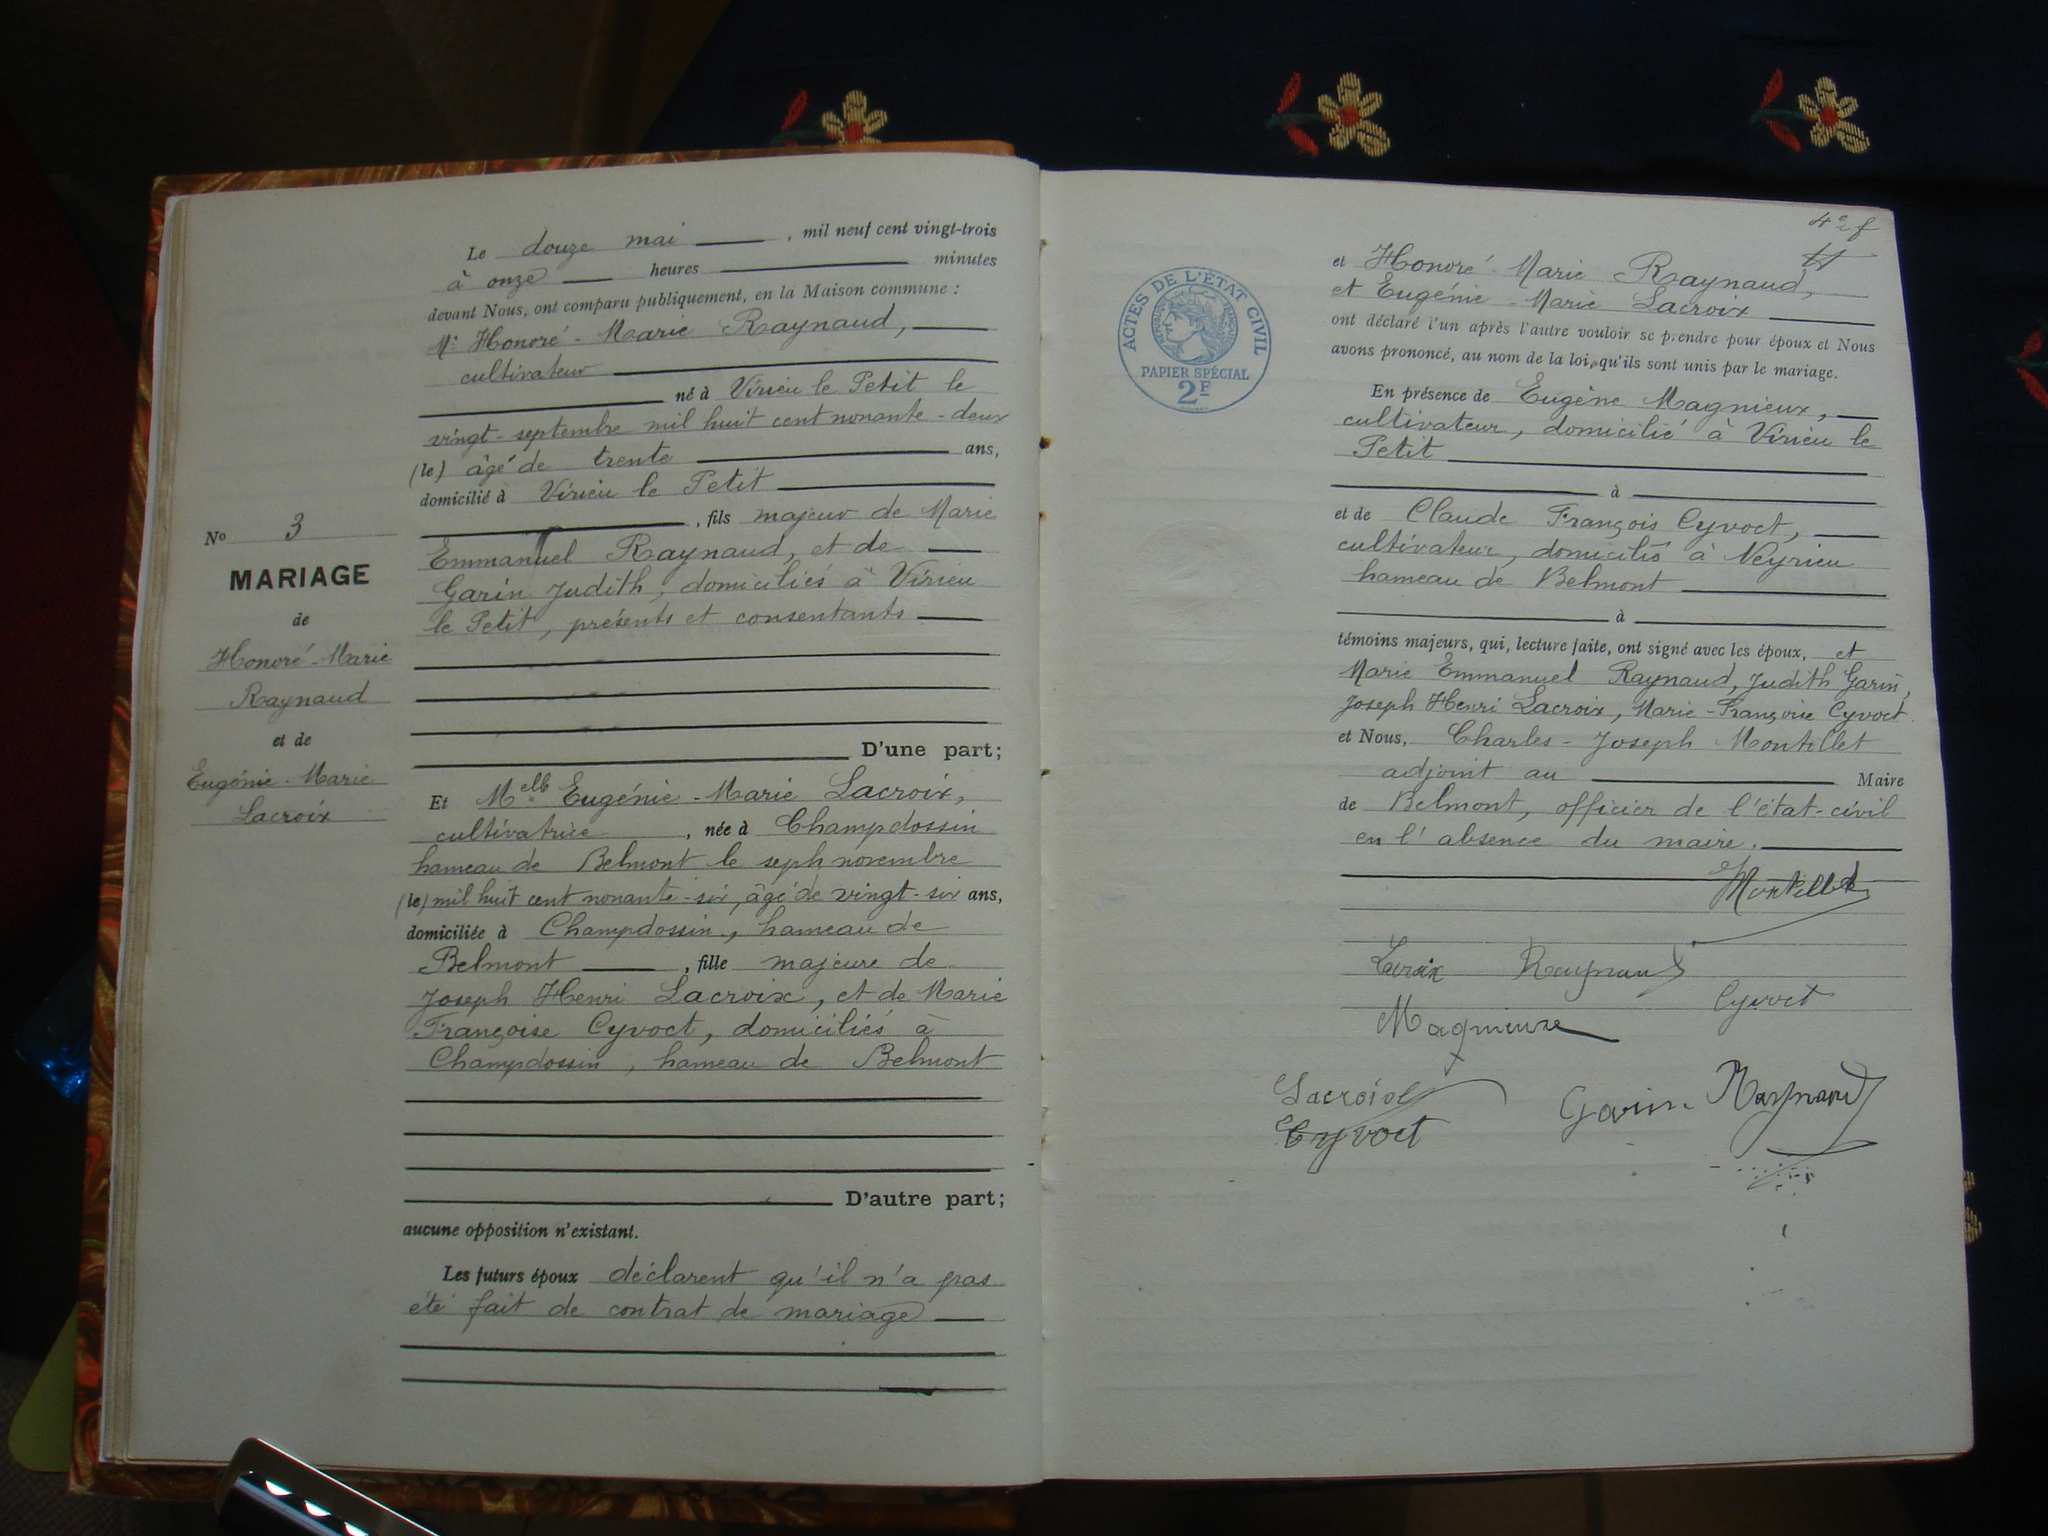 Le douze mai, mil neuf cent vingt-trois
à onze heures minutes
devant Nous, ont comparu publiquement, en la Maison commune :
Mr Honoré-Marie Raynaud,
cultivateur
né à Virieu le Petit le
vingt-septembre mil huit cent nonante-deux
(le) âgé de trente ans,
domicilié à Virieu le Petit
, fils majeur de Marie
Emmanuel Raynaud, et de
Garin Judith, domiciliés à Virieu
le Petit, présents et consentants
D'une part;
Et Melle Eugénie-Marie Lacroix,
cultivatrice, née à Champdossin
hameau de Belmont le sept novembre
(le) mil huit cent nonante-six, âgé de vingt-six ans,
domiciliée à Champdossin, hameau de
Belmont, fille majeure de
Joseph Henri Lacroix, et de Marie
Françoise Cyvoct, domiciliés à
Champdossin, hameau de Belmont
D'autre part;
aucune opposition n'existant.
Les futurs époux déclarent qu'il n'a pas
été fait de contrat de mariage
No 3
MARIAGE
de
Honoré-Marie
Raynaud
et de
Eugénie-Marie
Lacroix
4e f
ACTES DE L'ÉTAT CIVIL
PAPIER SPÉCIAL
2F
et Honoré-Marie Raynaud,
et Eugénie-Marie Lacroix
ont déclaré l'un après l'autre vouloir se prendre pour époux et Nous
avons prononcé, au nom de la loi, qu'ils sont unis par le mariage.
En présence de Eugène Magnieux,
cultivateur, domicilié à Virieu le
Petit
à
et de Claude François Cyvoct,
cultivateur, domicilié à Neyrieu
hameau de Belmont
à
témoins majeurs, qui, lecture faite, ont signé avec les époux, et
Marie Emmanuel Raynaud, Judith Garin,
Joseph Henri Lacroix, Marie-Françoise Cyvoct
et Nous, Charles-Joseph Montillet
adjoint au Maire
de Belmont, officier de l'état-civil
en l'absence du maire.
Montillet
Lacroix Raynaud
Cyvoct
Magnieux
Lacroix
Garin Raynaud
Cyvoct